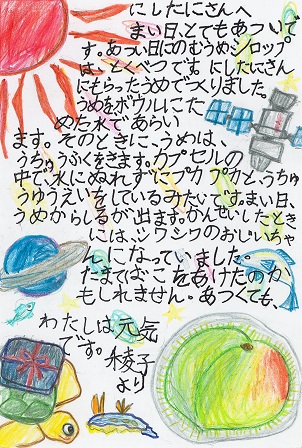 にしたにさんへ
まい日、とてもあついで
す。あつい日にのむうめシロップ
は、とくべつです。にしたにさん
にもらったうめでつくりました。
うめをボウルにこた
めた水であらい
ます。そのときに、うめは、
うちゅうふくをきます。カプセルの
中で、水にぬれずにプカプカと、うちゅ
うゆうえいをしているみたいです。まい日、
うめからしるが出ます。かんせいしたとき
には、シワシワのおじいちゃ
んになっていました。
たまてばこをあけたのか
もしれません。あつくても、
わたしは元気
です。
棱子
より